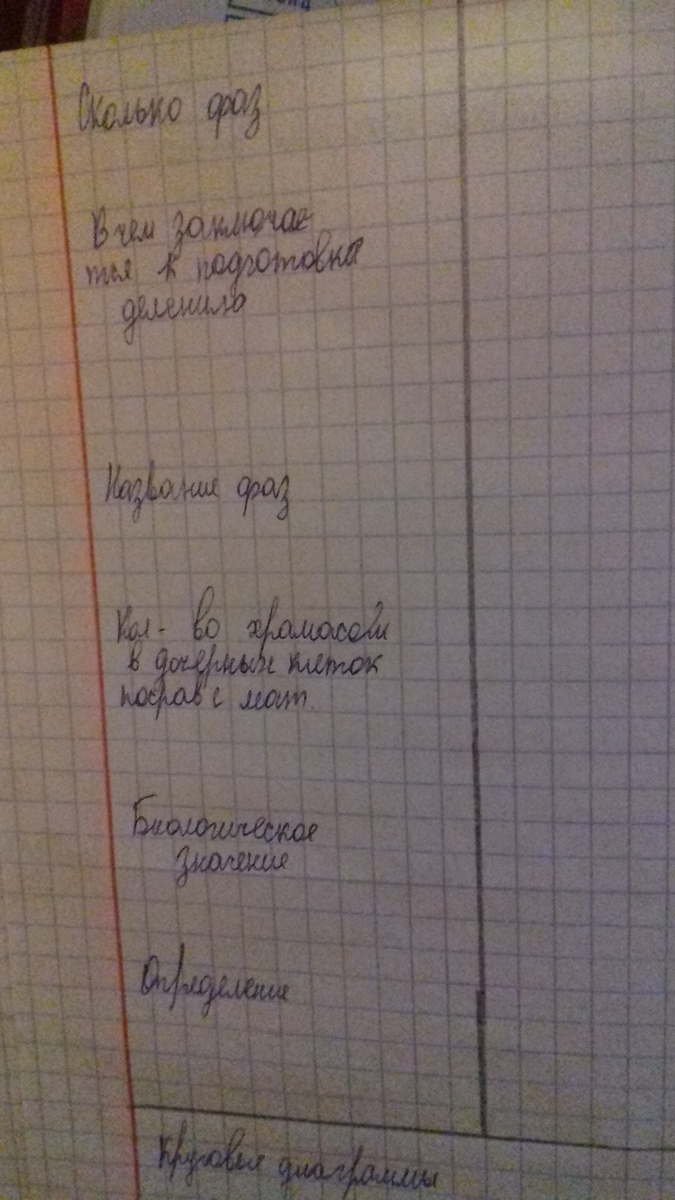 Сколько фаз
В чем заключае
тся к подготовка
деления
Название фаз
Кол-во храмасом
в дочерных клеток
по срав с мат.
Биологическое
значение
Определение
Круговые диаграммы